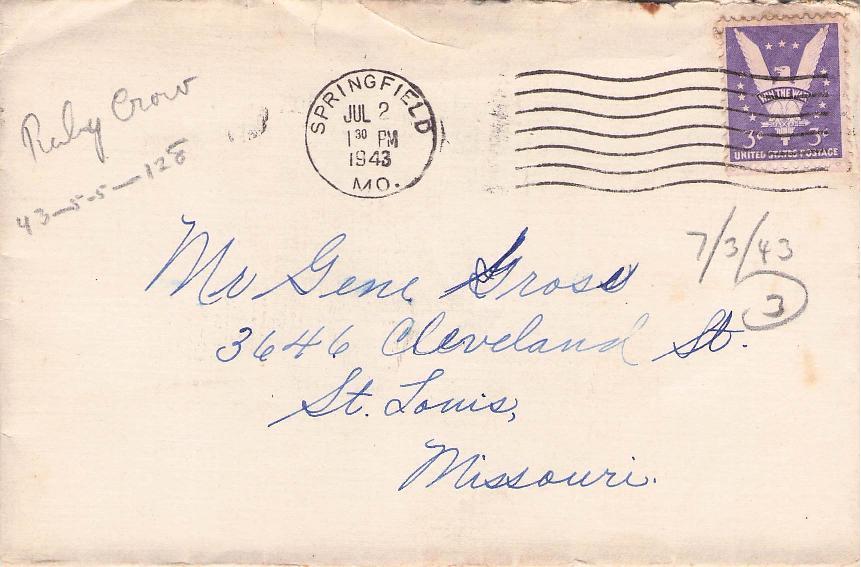 Ruby Crow
43-5-5-128
SPRINGFIELD
JUL 2
1 30 PM
1943
MO.
WIN THE WAR
3¢ 3¢
UNITED STATES POSTAGE
7/3/43
3
Mr Gene Gross
3646 Cleveland St.
St. Louis,
Missouri.